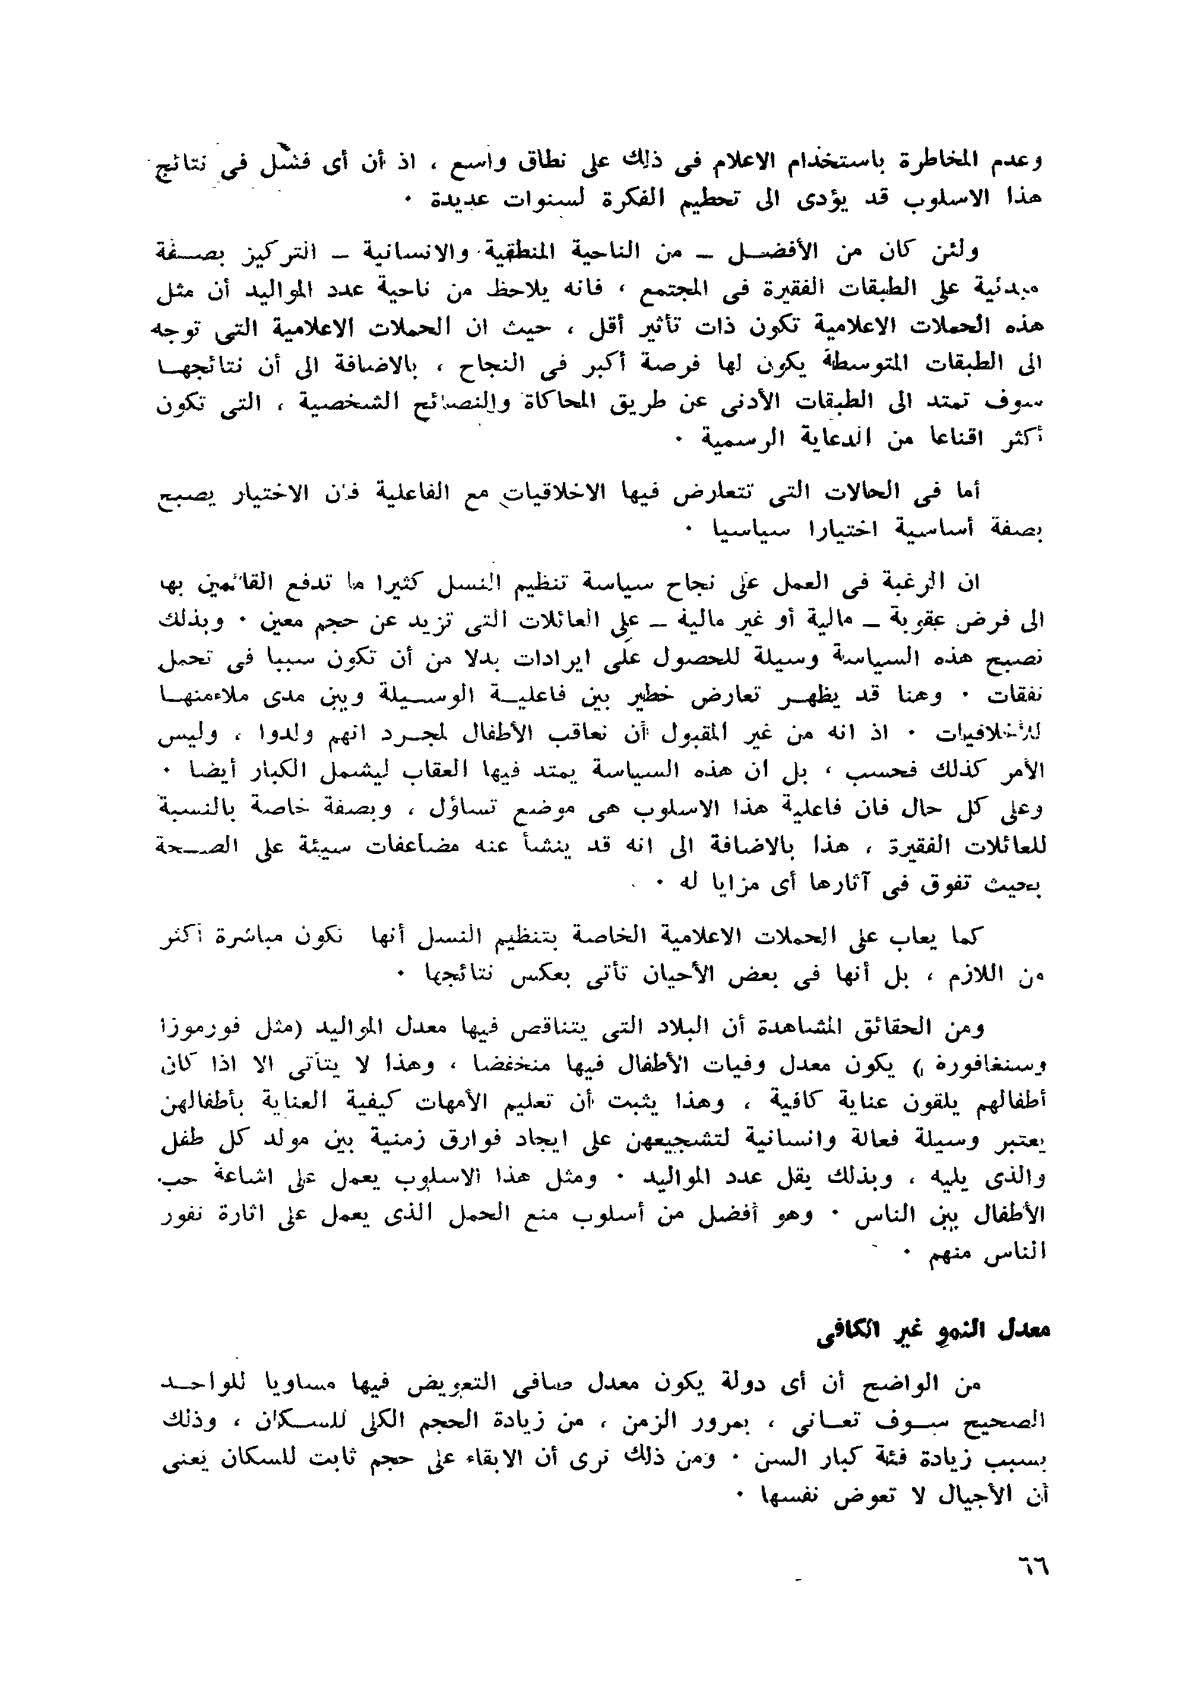 وعدم المخاطرة باستخدام الاعلام فى ذلك على نطاق واسع ، اذ أن أى فشل فى نتائج
هذا الاسلوب قد يؤدى الى تحطيم الفكرة لسنوات عديدة ٠
ولئن كان من الأفضل ــ من الناحية المنطقية والانسانية ــ التركيز بصفة
مبدئية على الطبقات الفقيرة فى المجتمع ، فانه يلاحظ من ناحية عدد المواليد أن مثل
هذه الحملات الاعلامية تكون ذات تأثير أقل ، حيث ان الحملات الاعلامية التى توجه
الى الطبقات المتوسطة يكون لها فرصة أكبر فى النجاح ، بالاضافة الى أن نتائجها
سوف تمتد الى الطبقات الأدنى عن طريق المحاكاة والنصائح الشخصية ، التى تكون
أكثر اقناعا من الدعاية الرسمية ٠
أما فى الحالات التى تتعارض فيها الاخلاقيات مع الفاعلية فان الاختيار يصبح
بصفة أساسية اختيارا سياسيا ٠
ان الرغبة فى العمل على نجاح سياسة تنظيم النسل كثيرا ما تدفع القائمين بها
الى فرض عقوبة ــ مالية أو غير مالية ــ على العائلات التى تزيد عن حجم معين ٠ وبذلك
تصبح هذه السياسة وسيلة للحصول على ايرادات بدلا من أن تكون سببا فى تحمل
نفقات ٠ وهنا قد يظهر تعارض خطير بين فاعلية الوسيلة وبين مدى ملاءمتها
للأخلاقيات ٠ اذ انه من غير المقبول أن نعاقب الأطفال لمجرد انهم ولدوا ، وليس
الأمر كذلك فحسب ، بل ان هذه السياسة يمتد فيها العقاب ليشمل الكبار أيضا ٠
وعلى كل حال فان فاعلية هذا الاسلوب هى موضع تساؤل ، وبصفة خاصة بالنسبة
للعائلات الفقيرة ، هذا بالاضافة الى انه قد ينشأ عنه مضاعفات سيئة على الصحة
بحيث تفوق فى آثارها أى مزايا له ٠
كما يعاب على الحملات الاعلامية الخاصة بتنظيم النسل أنها تكون مباشرة أكثر
من اللازم ، بل أنها فى بعض الأحيان تأتى بعكس نتائجها ٠
ومن الحقائق المشاهدة أن البلاد التى يتناقص فيها معدل المواليد (مثل فورموزا
وسنغافورة ) يكون معدل وفيات الأطفال فيها منخفضا ، وهذا لا يتأتى الا اذا كان
أطفالهم يلقون عناية كافية ، وهذا يثبت أن تعليم الأمهات كيفية العناية بأطفالهن
يعتبر وسيلة فعالة وانسانية لتشجيعهن على ايجاد فوارق زمنية بين مولد كل طفل
والذى يليه ، وبذلك يقل عدد المواليد ٠ ومثل هذا الاسلوب يعمل على اشاعة حب
الأطفال بين الناس ٠ وهو أفضل من أسلوب منع الحمل الذى يعمل على اثارة نفور
الناس منهم ٠
معدل النمو غير الكافى
من الواضح أن أى دولة يكون معدل صافى التعويض فيها مساويا للواحد
الصحيح سوف تعانى ، بمرور الزمن ، من زيادة الحجم الكلى للسكان ، وذلك
بسبب زيادة فئة كبار السن ٠ ومن ذلك نرى أن الابقاء على حجم ثابت للسكان يعنى
أن الأجيال لا تعوض نفسها ٠
٦٦